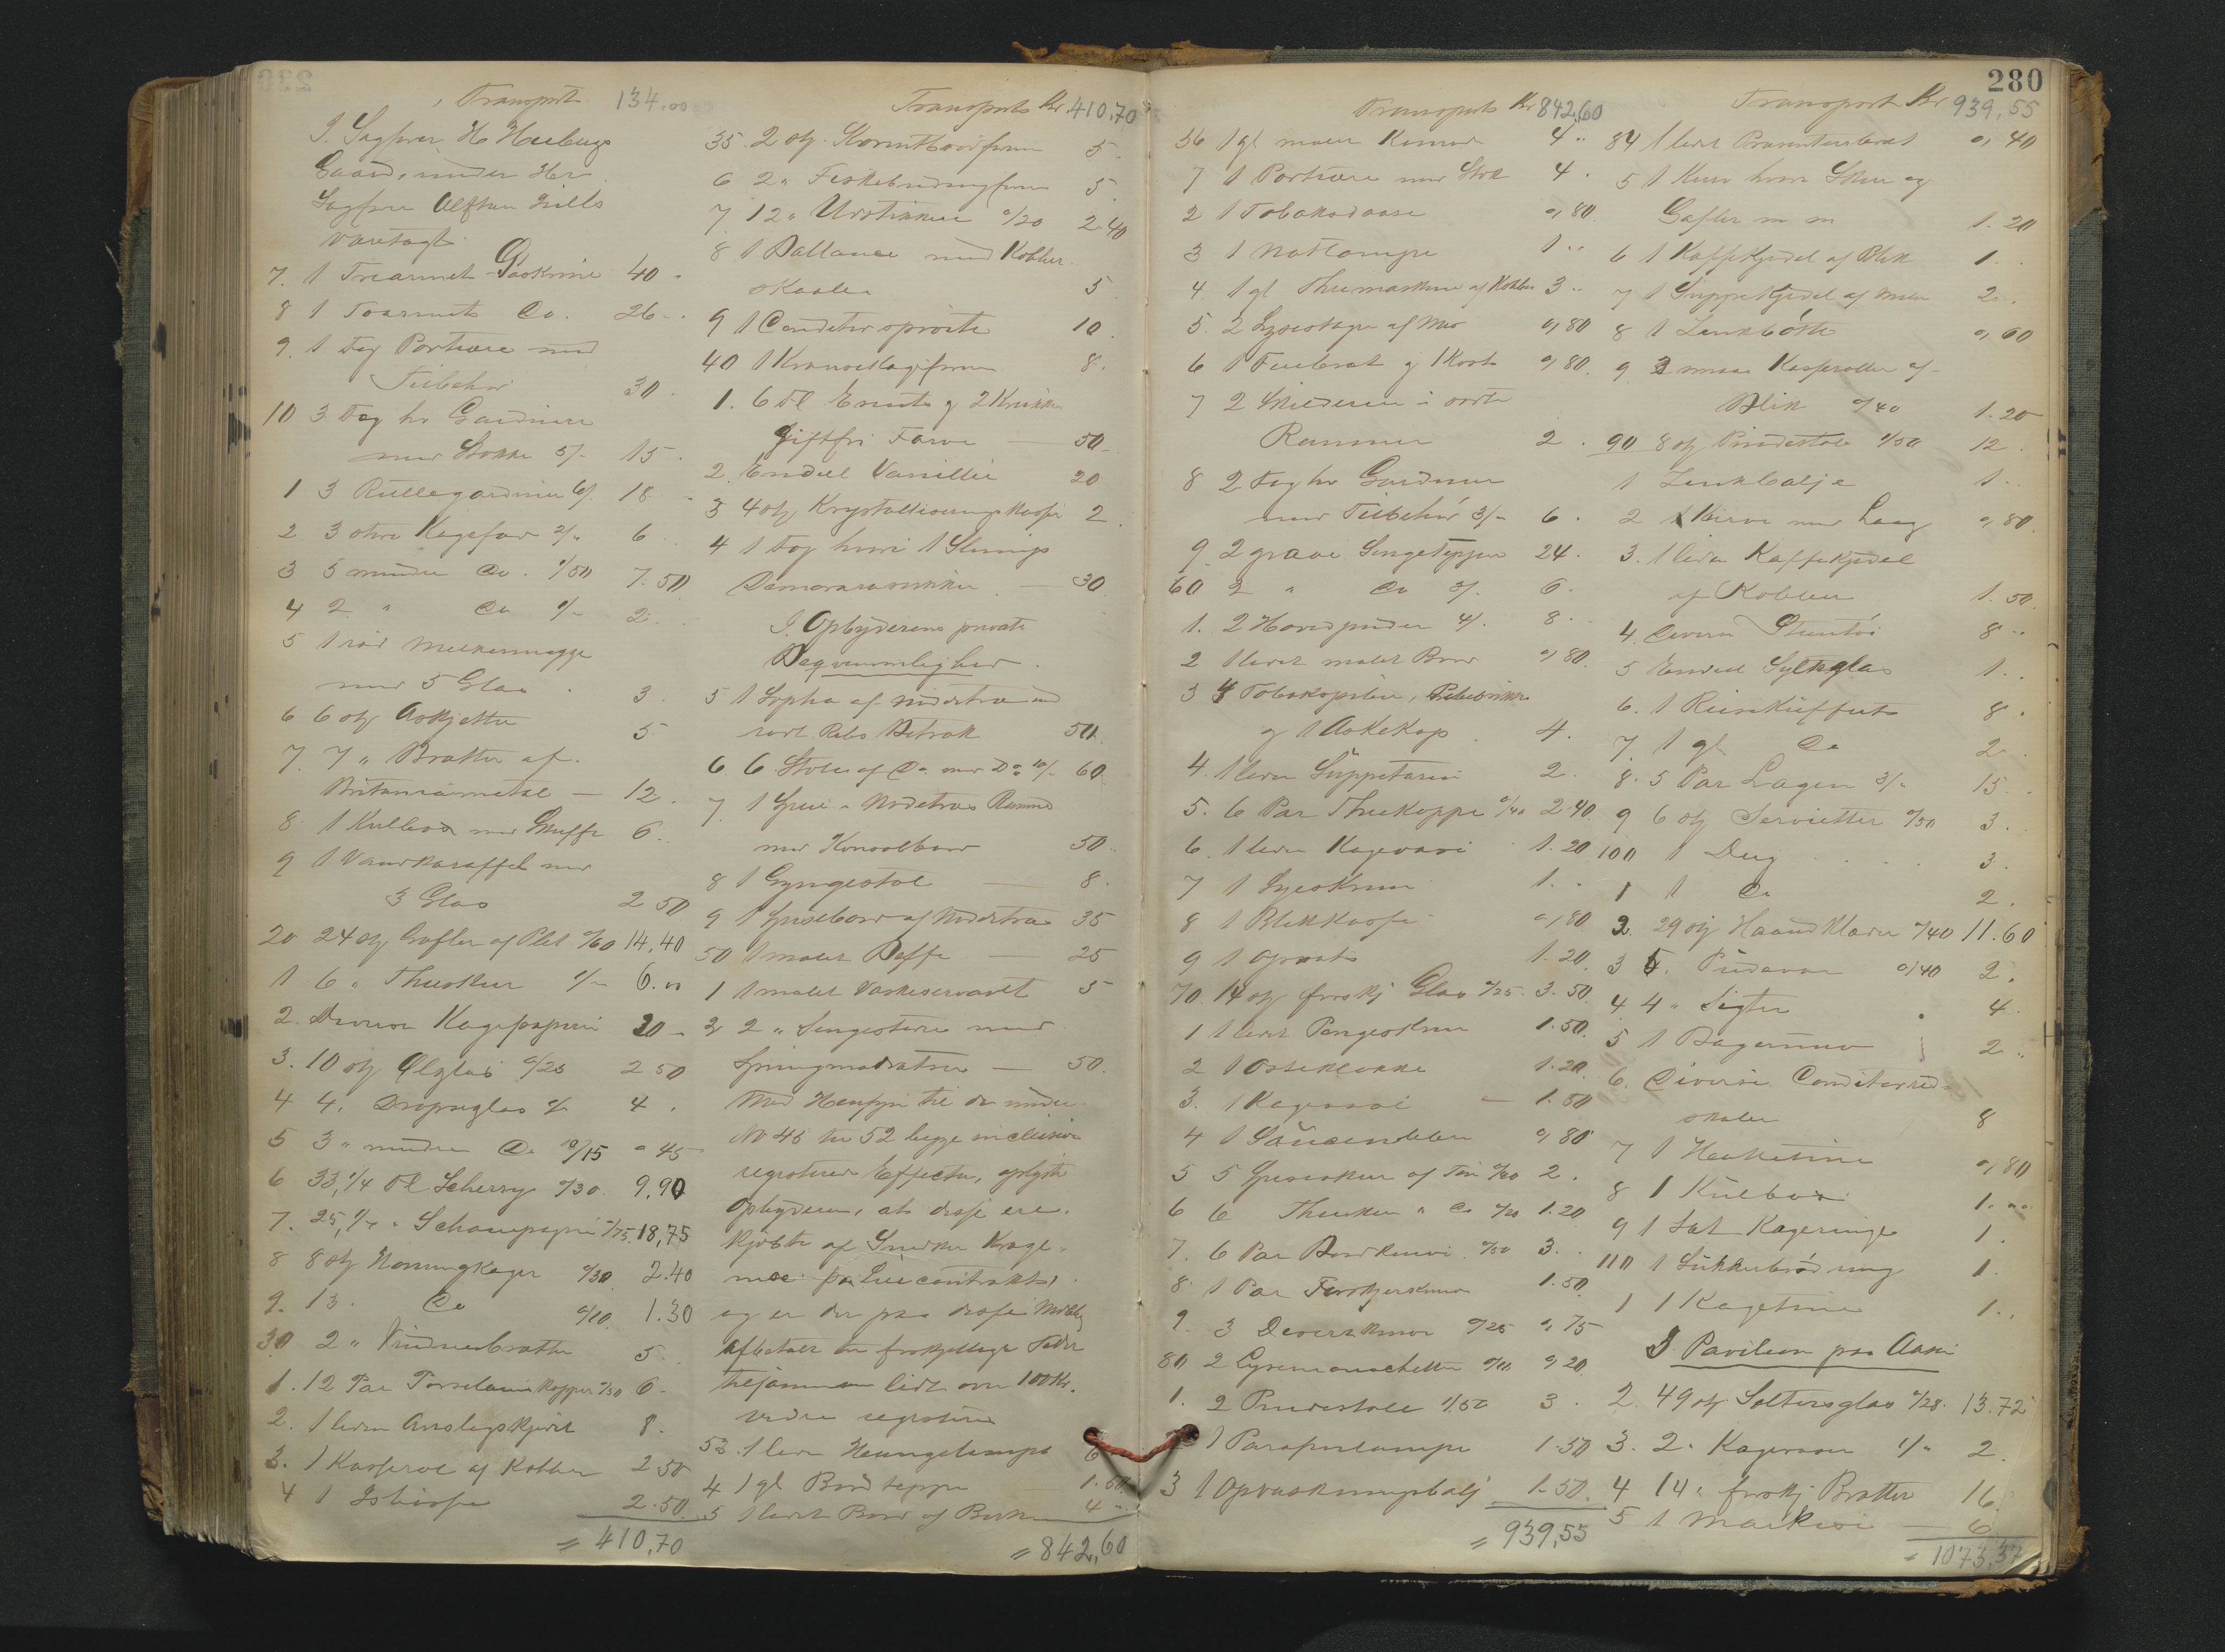 280
Transport 134.00
I. Sagfører H Heibergs
Gaard, under Hr
Sagfører
varetagt.
7. 1 Trearmet Gaskrone 40 -
8 1 Toarmet Do. 26 - .
9. 1 Fag Portiere med
Tilbehør 30.
10 3 Fag hv Gardiner
med Stokke 5/- 15.
1 3 Rullegardiner 6/. 18. -
2 3 store Kagefad 2/" 6
3 5 mindre Do. 1/50 7.50
4 2 " Do 1/- 2.
5 1 rød Melkemugge
med 5 Glas . 3.
6 6 stk Askjetter 5
7. 7 " Bratter af
Britaniametal — 12.
8. 1 Kulbox med Skuffe 6.
9 1 Vandkaraffel med
3 Glas 2 50
20 24 stk Gafler af Plet 0/60 14.40
1 6 " Theskeer 1/- 6.00
2. Diverse Kagepapir 20 -
3. 10 stk Ølglas 0/25 2 50
4 4. Dropsglas 1/- 4 .
5 3 " mindre Do 0/15 " 45
6 33, 1/4 Fl Scherry 0/30. 9,90
7. 25, 1/4 " Schampagne 0/75. 18,75
8 8 stk Honningkager 0/30 2.40
9. 13. Do 0/10. 1.30
30 2 " Vinduesbratter 5.
1. 12 Par Porselains Kopper 0/50 6 -
2. 1 liden Anslagskjedel 8.
3. 1 Kasserol af Kobber 2 50
4 1 2.50.
= 410,70
Transport Kr. 410,70
35. 2 stk. Korintbrødformer 5 -
6 2 " Fiskebudingformer 5
7. 12 " Udstikkere 0/20 2.40
8 1 Ballance med Kobber
skaaler 5
9 1 Conditorsprøite 10.
40 1 Kransekageform 8.
1. 6 Fl Essents og 2 Krukker
Giftfri Farve — 50 -
2. Endeel Vanillie 20
3 4 stk Krystalliseringskasser 2.
4 1 Fag hvori 1 Slumps
Demararasukker . — 30.
I. Opbyderens private
Beqvemmelighed.
5 1 Sopha af Nødetræ med
rødt Rips Betræk 50.
6 6 Stoler af Do. med Do. 10/- 60.
7. 1 Speil i Nødetræs Ramme
med Konsolbord 50.
8 1 Gyngestol — 8.
9 1 Spisebord af Nødetræ 35
50 1 malet Buffe — 25
1 1 malet Vaskeservant 5
2 2 " Sengesteder med
Springmadratser — 50.
Med Hensyn til de under
No 45 til 52 begge inclusive
registrerede Effecter, oplyste
Opbyderen, at disse ere
kjøbte af Snedker Krage-
moe paa Leiecontrakt,
og er der paa disse Møbler
afbetalt til forskjellige Tider
tilsammen lidt over 100 Kr.
Videre registrere
53. 1 liden Hængelampe 6
4 1 gl Bordteppe 1.60.
5 1 lidet Bord af Birk 4 "
= 842,60
Transport Kr 842,60
56 1 gl malet Komode 4 "
7 1 Portiere med Stok 4 .
2 1 Tobaksdaase 0,80
3 1 Natlampe 1 "
4. 1 gl Themaskine af Kobber 3 "
5. 2 Lysestager af Mes 0,80
6 1 Feiebrat og 1 Kost 0,80.
7 2 Skilderier i sorte
Rammer 2 .
8 2 Fag hv Gardiner
med Tilbehør 3/- 6 .
9. 2 graae Sengetepper 24.
60 2 " Do 3/. 6.
1. 2 Hovedpuder 4/. 8.
2 1 lidet malet Bord 0,80.
3 4 Tobakspiber,
og 1 Askekop . 4.
4. 1 liden Suppeterin 2.
5. 6 Par Thekopper 0/40 2.40
6. 1 liden Kagevase 1.20
7 1 Lyseskrin 1. .
8 1 Blikkasse 0,80
9 1 Opsats 1.20
70. 14 stk forskj Glas 0/25 3.50.
1 1 lidet Pengeskrin 1.50.
2 1 Osteklokke 1.20
3. 1 Kagevase — 1.50
4 1 0,80
5 5 Spiseskeer af Tin 0/40 2.
6 6 Theskeer " Do 0/20 1.20
7. 6 Par Bordknive. 0/50 3. .
8. 1 Par Forskjerskniver 1.50.
9. 3 Desertknive 0/25 0,75
80 2 Lysemanschetter 0/10 0,20.
1. 2 Pindestole 1/50 3.
2 1 Parafinlampe 1.50
3 1 Opvaskningsbalje 1.50.
= 939,55
Transport Kr 939,55
84 1 lidet Presenterbrat 0,40
5 1 Kurv hvori Skeer og
Gafler m m 1.20
6 1 Kaffekjedel af Blik 1 .
7 1 Suppekjedel af 2.
8 1 Zinkbøtte 0,60
9 3 smaa Kasseroller af
Blik 0/40 1.20
90 8 stk Pindestole 1/50 12.
1 Zinkbalje 1.
2 1 Kurv med Laag 0,80.
3. 1 liden Kaffekjedel
af Kobber 1.50.
4. Diverse Stentøi 8 "
5 Endeel Sylteglas 1. .
6. 1 Reisekuffert 8 .
7. 1 gl Do 2 .
8. 5 Par Lagen 3/- 15.
9 6 stk Servietter 0/50 3.
100 1 Dug . . . . 3.
1 1 Do 2.
2. 29 stk Haandklæder 0/40 11.60
3 5. Pudevar 0/40 2.
4 4 " Sigter 4.
5 1 2 "
6. Diverse Conditored-
skaber 8
7 1 Hakketine 0,80
8 1 Kulbox 1. "
9 1 Sæt Kageringe 1.
110 1 Sukkerbrød ring 1.
1 1 Kagetine 1. .
I. Pavilion paa
2. 49 stk Seltersglas 0/28. 13.72
3. 2 " Kagevaser 1/- 2
4 14 " forskj Bratter 16.
5 1 Markise — 6
= 1073,37